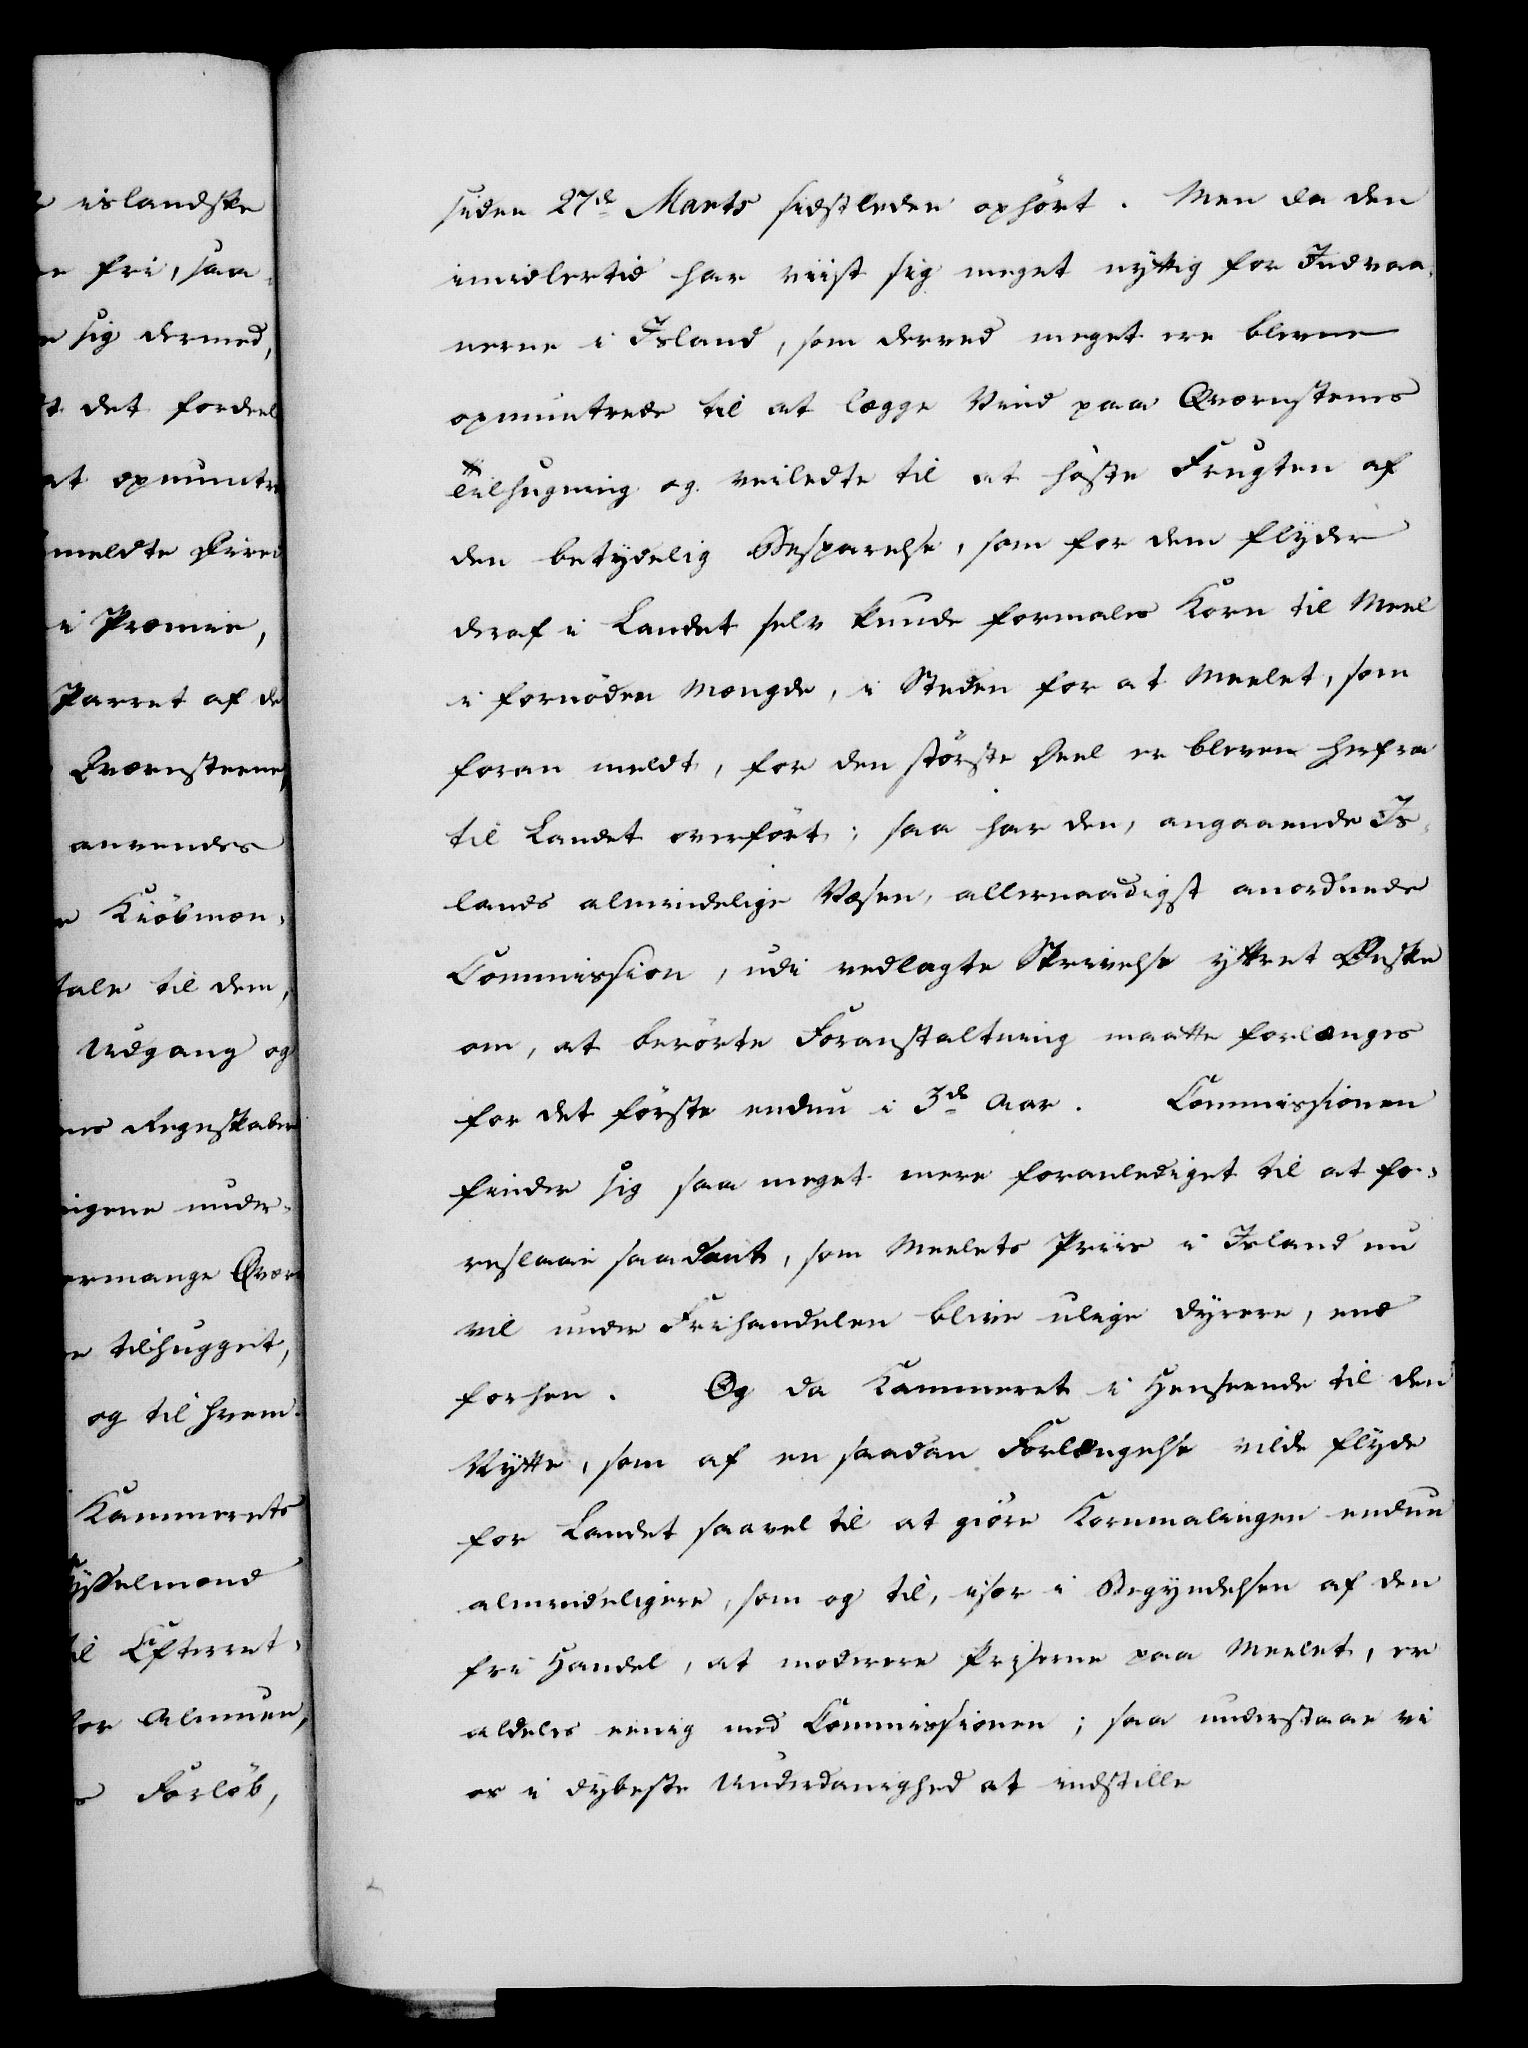 islandske
fri, saa-
sig dermed,
det fordeel
at opmuntre
meldte
i Præmie,
Parret af de
Qværnsteene,
anvendes
Kiöbmæn-
tale til dem,
Udgang og
Regnskaber
under-
Qvær
tilhugget,
og til hvem.
Kammerets
Sysselmænd
til Efterret-
for Almuen,
Forlöb,
siden 27de Marts sidstleden ophört. Men da den
imidlertid har viist sig meget nyttig for Indvaa-
nerne i Island, som derved meget ere blevne
opmuntrede til at lægge Vind paa Qværnsteens
Tilhugning og veiledte til at höste Frugten af
den betydelig Besparelse, som for dem flyder
deraf i Landet selv kunde formales Korn til Meel
i fornöden Mængde, i Steden for at Meelet, som
foran meldt, for den störste Deel er bleven herfra
til Landet overfört; saa har den, angaaende Is-
lands almindelige Væsen, allernaadigst anordnede
Commission, udi vedlagte Skrivelse yttret Ønske
om, at berörte Foranstaltning maatte forlænges
for det förste endnu i 3de Aar. Commissionen
finder sig saa meget mere foranlediget til at fo-
reslaae saadant, som Meelets Priis i Island nu
vil under Frihandelen blive ulige dyrere, end
forhen. Og da Kammeret i Henseende til den
Nytte, som af en saadan Forlængelse vilde flyde
for Landet saavel til at giöre Kornmalingen endnu
almindeligere, som og til, især i Begyndelsen af den
fri Handel, at moderere Priserne paa Meelet, er
aldeles eenig med Commissionen; saa understaae vi
os i dybeste Underdanighed at indstille